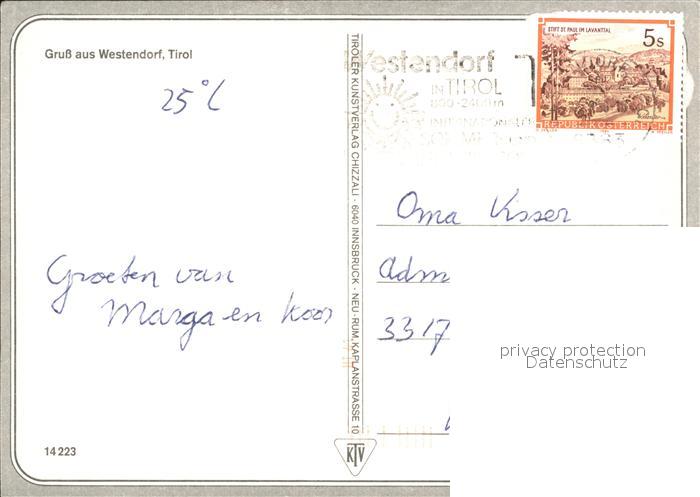 Gruß aus Westendorf, Tirol
25°C
Groeten van
Marga en Koos
14 223
TIROLER KUNSTVERLAG CHIZZALI · 6040 INNSBRUCK · NEU-RUM, KAPLANSTRASSE 10
KTV
Westendorf
IN TIROL
STIFT ST. PAUL IM LAVANTTAL
5s
REPUBLIK ÖSTERREICH
Oma Visser
Adm
3317
privacy protection
Datenschutz